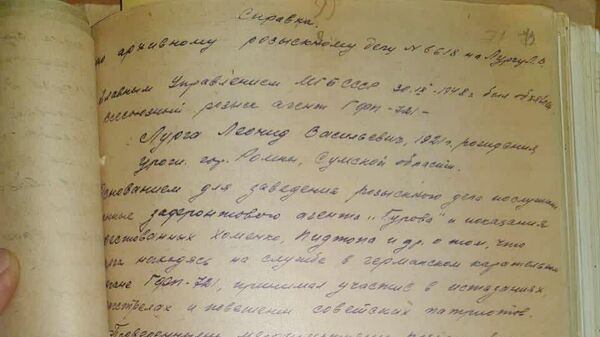 Справка.
по архивному розыскному делу № 6618 на Лургу Л.В.
Главным Управлением МГБ СССР 30.IX-1948г. был объявлен
всесоюзный розыск агент ГФП-721-
Лурга Леонид Васильевич, 1921г. рождения,
урож. гор. Ромны, Сумской области.
Основанием для заведения розыскного дела послужили
данные зафронтового агента „Гурова" и показания
арестованных Хоменко, Пидтопа и др. о том, что
Лурга находясь на службе в германском карательном
органе ГФП-721, принимал участие в истязаниях
расстрелах и повешении советских патриотов.
Проведенными